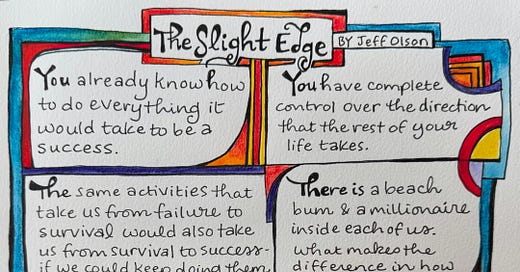 The Slight Edge
BY Jeff Olson
You already know how
to do everything it
would take to be a
success.
You have complete
control over the direction
that the rest of your
life takes.
The same activities that
take us from failure to
survival would also take
us from survival to success-
if we could keep doing them
There is a beach
bum & a millionaire
inside each of us.
what makes the
difference in how